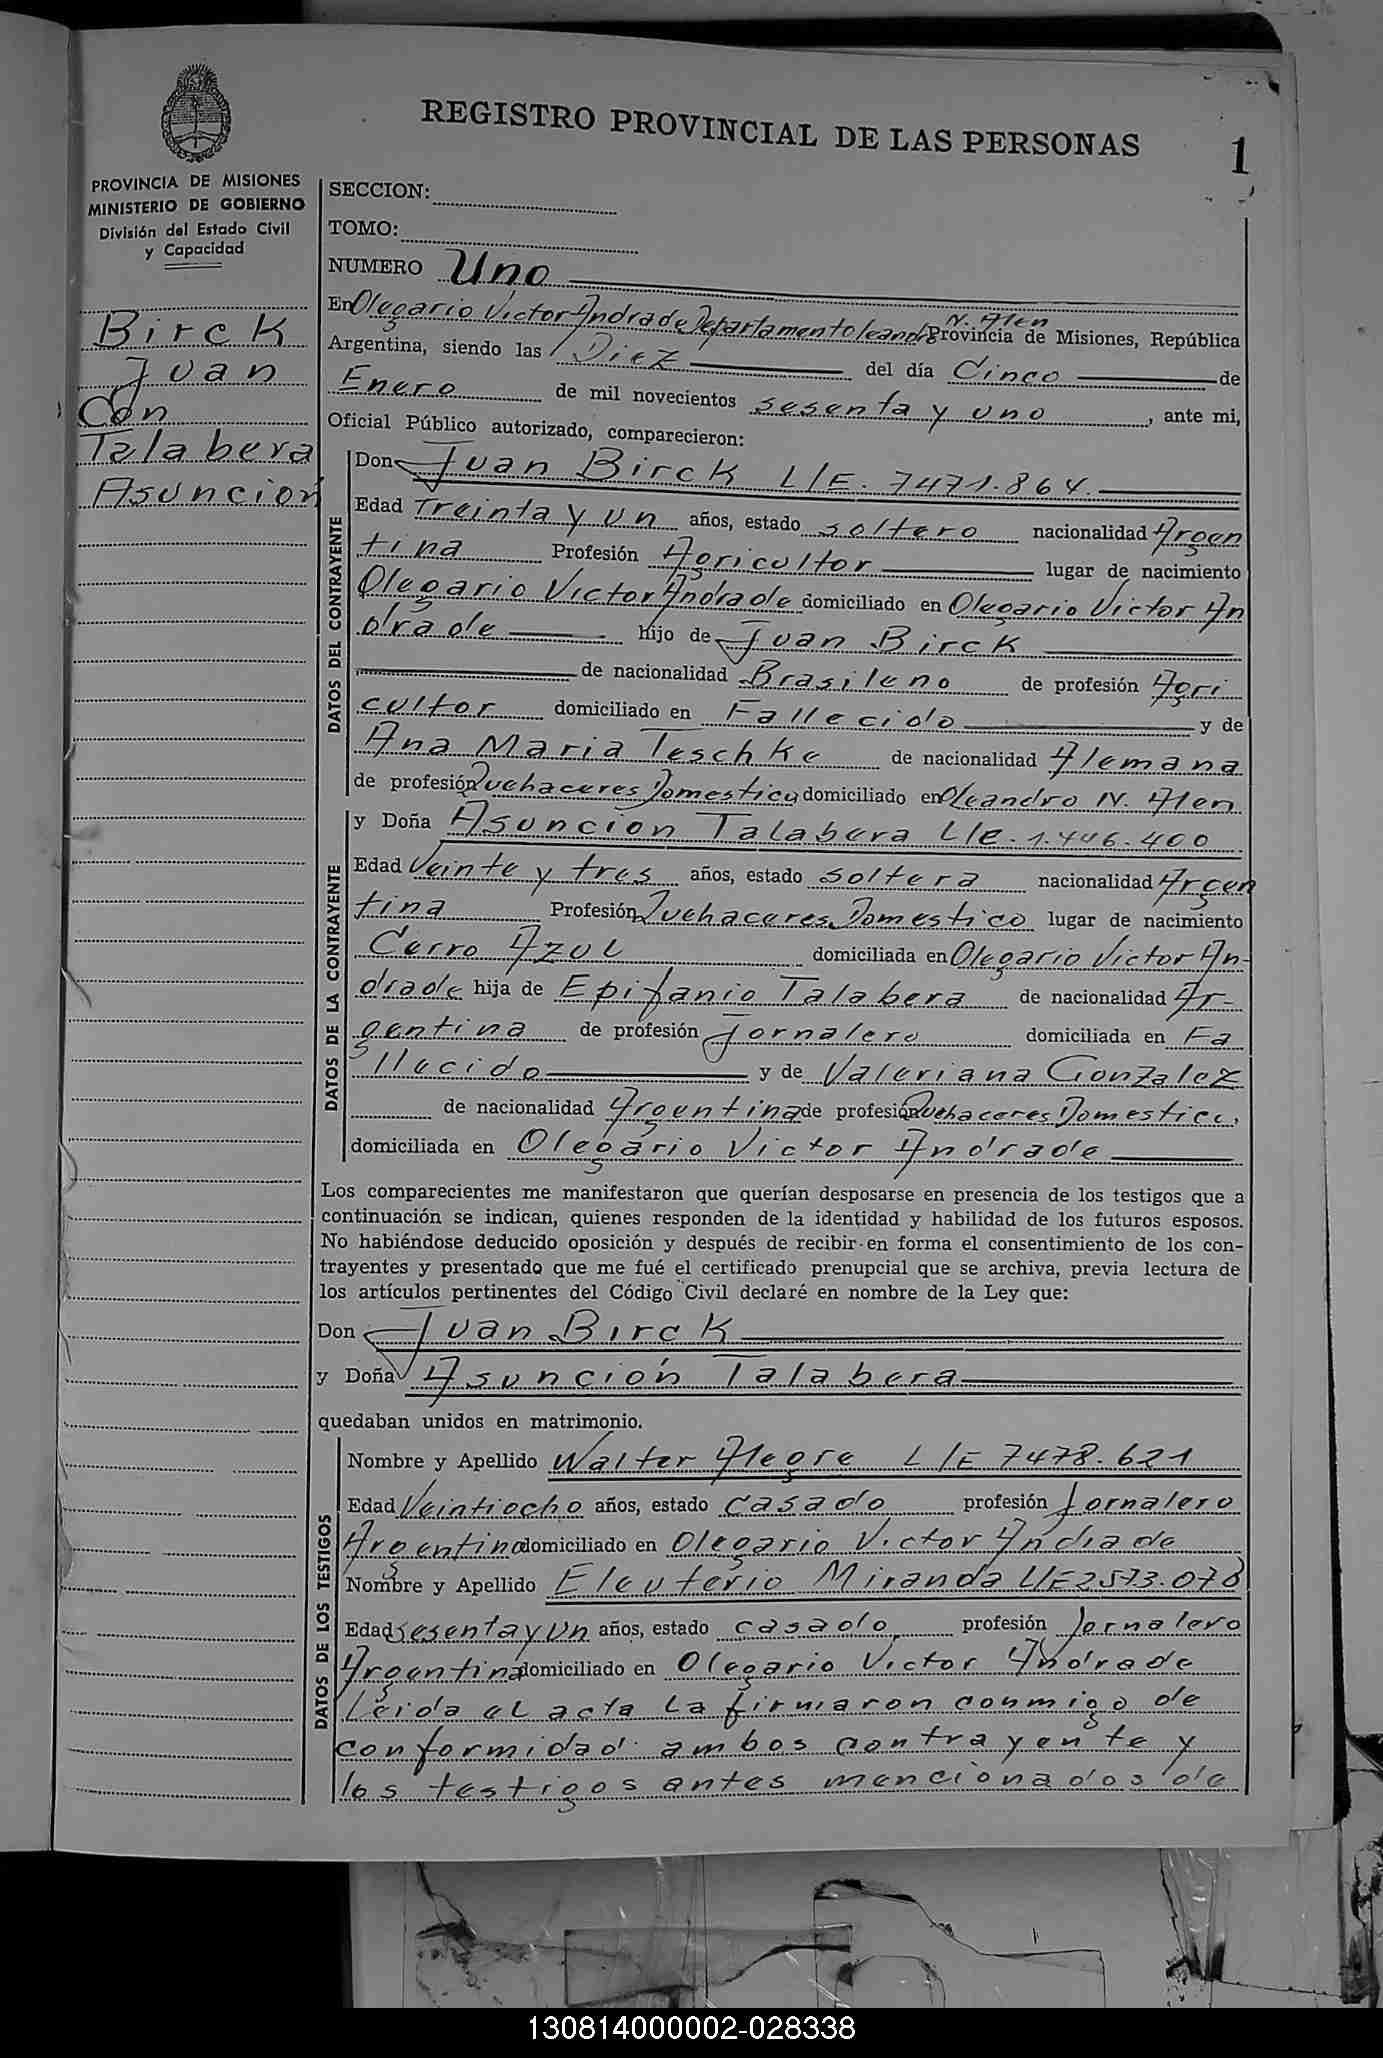 REGISTRO PROVINCIAL DE LAS PERSONAS
1
PROVINCIA DE MISIONES
MINISTERIO DE GOBIERNO
División del Estado Civil
y Capacidad
Birck
Juan
Con
Talabera
Asuncion
SECCION:
TOMO:
NUMERO Uno
N. Alen
En Olegario Victor Andrade Departamento Leandro Provincia de Misiones, República
Argentina, siendo las Diez del día Cinco de
Enero de mil novecientos sesenta y uno, ante mi,
Oficial Público autorizado, comparecieron:
DATOS DEL CONTRAYENTE
Don Juan Birck L/E. 7471.864.
Edad Treinta y un años, estado soltero nacionalidad Argen
tina Profesión Agricultor lugar de nacimiento
Olegario Victor Andrade domiciliado en Olegario Victor An
drade hijo de Juan Birck
de nacionalidad Brasileno de profesión Agri
cultor domiciliado en Fallecido y de
Ana Maria Teschke de nacionalidad Alemana
de profesión Quehaceres Domestico domiciliado en Oleandro N. Alen
DATOS DE LA CONTRAYENTE
y Doña Asuncion Talabera L/e. 1.446.400
Edad Veinte y tres años, estado soltera nacionalidad Argen
tina Profesión Quehaceres Domestico lugar de nacimiento
Cerro Azul domiciliada en Olegario Victor An-
drade hija de Epifanio Talabera de nacionalidad Ar-
gentina de profesión Jornalero domiciliada en Fa
llecido y de Valeriana Gonzalez
de nacionalidad Argentina de profesión Quehaceres Domestico,
domiciliada en Olegario Victor Andrade
Los comparecientes me manifestaron que querían desposarse en presencia de los testigos que a
continuación se indican, quienes responden de la identidad y habilidad de los futuros esposos.
No habiéndose deducido oposición y después de recibir en forma el consentimiento de los con-
trayentes y presentado que me fué el certificado prenupcial que se archiva, previa lectura de
los artículos pertinentes del Código Civil declaré en nombre de la Ley que:
Don Juan Birck
y Doña Asunción Talabera
quedaban unidos en matrimonio.
DATOS DE LOS TESTIGOS
Nombre y Apellido Walter Alegre L/E 7478.621
Edad Veintiocho años, estado casado profesión Jornalero
Argentino domiciliado en Olegario Victor Andrade
Nombre y Apellido Eleuterio Miranda L/E 2573.078
Edad sesenta y un años, estado casado profesión Jornalero
Argentina domiciliado en Olegario Victor Andrade
Leida el acta La firmaron conmigo de
conformidad ambos contrayente y
los testigos antes mencionados de
130814000002-028338